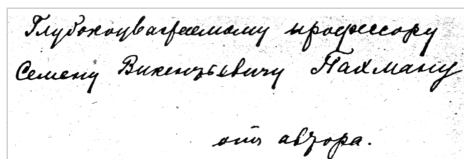 Глубокоуважаемому профессору
Семену Викентьевичу Пахману
отъ автора.